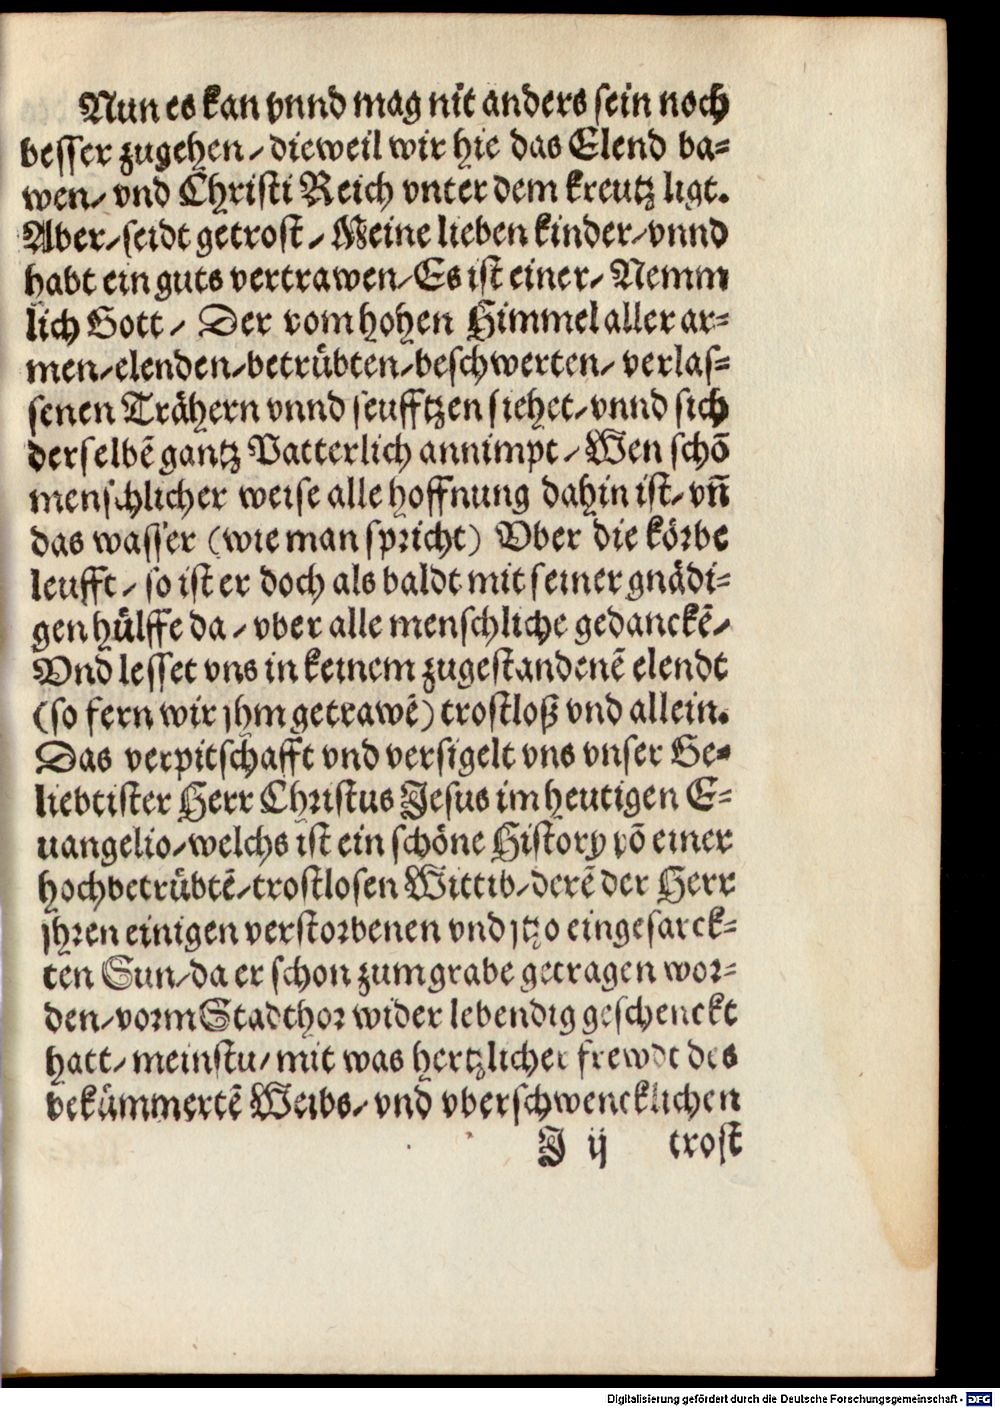 Nun es kan vnnd mag nit anders sein noch
besser zugehen / dieweil wir hie das Elend ba=
wen / vnd Christi Reich vnter dem kreutz ligt.
Aber / seidt getrost / Meine lieben kinder / vnnd
habt ein guts vertrawen / Es ist einer / Nemm
lich Gott / Der vom hohen Himmel aller ar=
men / elenden / betrübten / beschwerten / verlas=
senen Trähern vnnd seufftzen siehet / vnnd sich
derselbē gantz Vatterlich annimpt / Wen schō
menschlicher weise alle hoffnung dahin ist / vñ
das wasser (wie man spricht) Vber die körbe
leufft / so ist er doch als baldt mit seiner gnädi=
gen hülffe da / vber alle menschliche gedanckē /
Vnd lesset vns in keinem zugestandenē elendt
(so fern wir jhm getrawē) trostloß vnd allein.
Das verpitschafft vnd versigelt vns vnser Ge=
liebtister Herr Christus Jesus im heutigen E=
uangelio / welchs ist ein schöne History vō einer
hochbetrübtē / trostlosen Wittib / derē der Herr
jhren einigen verstorbenen vnd jtzo eingesarck=
ten Sun / da er schon zum grabe getragen wor=
den / vorm Stadthor wider lebendig geschenckt
hatt / meinstu / mit was hertzlicher frewdt des
bekümmertē Weibs / vnd vberschwencklichen
J ij trost
Digitalisierung gefördert durch die Deutsche Forschungsgemeinschaft - DFG